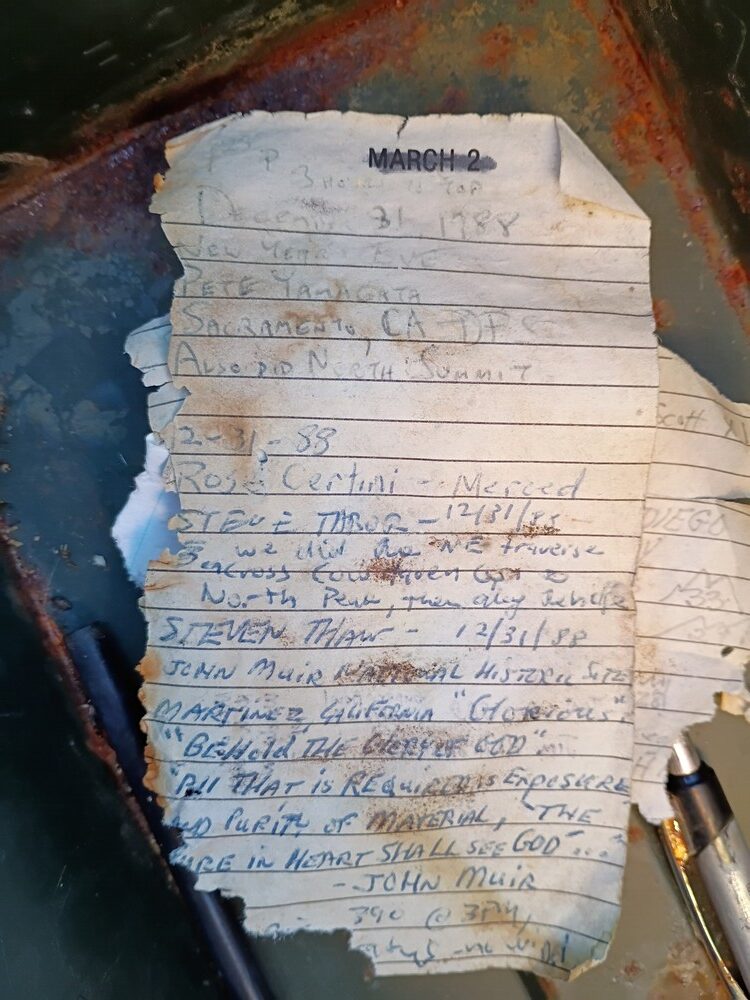 MARCH 2
TOP
December 31, 1988
New Year Eve
PETE YAMAGATA
SACRAMENTO, CA
ALSO DID NORTH SUMMIT
12-31-88
Rose Certini - Merced
STEVE TABOR - 12/31/88
we did the NE traverse
across
North Peak, then
STEVEN THAW - 12/31/88
JOHN MUIR NATIONAL HISTORIC SITE
MARTINEZ, CALIFORNIA "GLORIOUS"
"BEHOLD THE GLORY OF GOD"
"ALL THAT IS REQUIRED IS EXPOSURE
AND PURITY OF MATERIAL, "THE
PURE IN HEART SHALL SEE GOD"..."
- JOHN MUIR
390 @ 3PM,
no wind
Scott
DIEGO